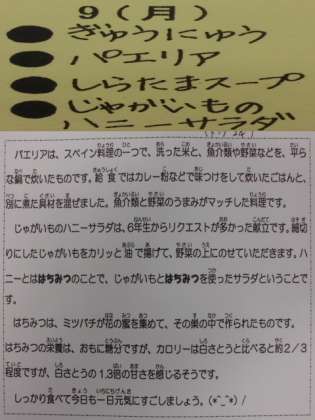 9(月)
ぎゅうにゅう
パエリア
しらたまスープ
じゃがいもの
ハニーサラダ
パエリアは、スペイン料理の一つで、洗った米と、魚介類や野菜などを、平ら
な鍋で炊いたものです。給食ではカレー粉などで味つけをして炊いたごはんと、
別に煮た具材を混ぜました。魚介類と野菜のうまみがマッチした料理です。
じゃがいものハニーサラダは、6年生からリクエストが多かった献立です。細切
りにしたじゃがいもをカリッと油で揚げて、野菜の上にのせていただきます。ハ
ニーとははちみつのことで、じゃがいもとはちみつを使ったサラダということで
す。
はちみつは、ミツバチが花の蜜を集めて、その巣の中で作られたものです。
はちみつの栄養は、おもに糖分ですが、カロリーは白さとうと比べると約2/3
程度ですが、白さとうの1.3倍の甘さを感じるそうです。
しっかり食べて今日も一日元気にすごしましょう。(*^_^*)/